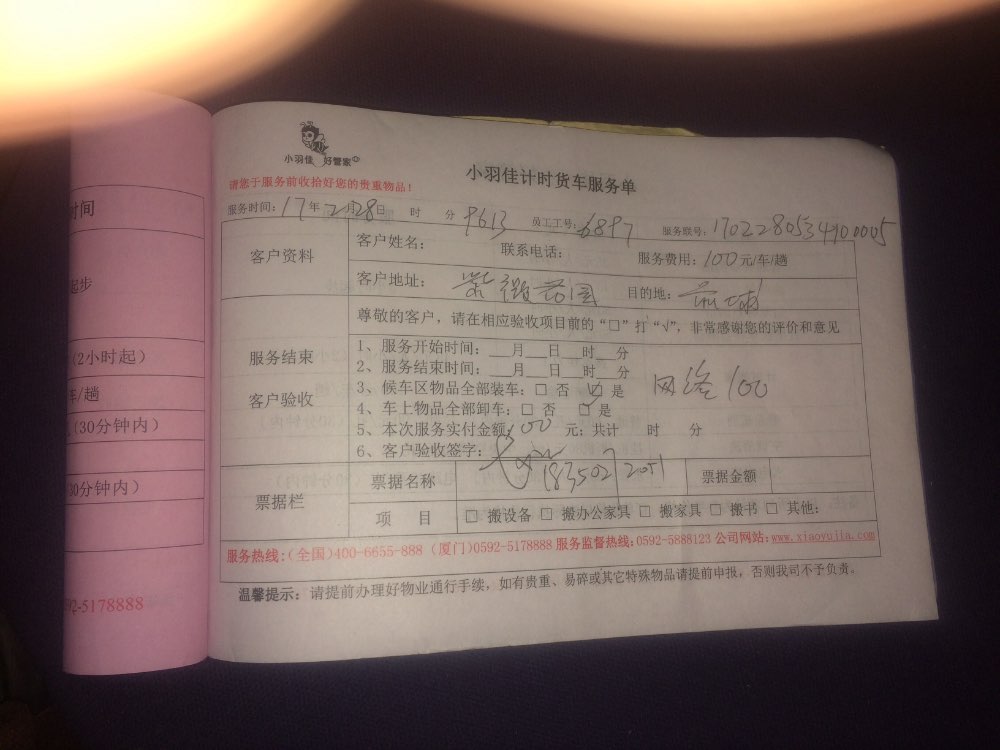 时间
起步
（2小时起）
车/趟
（30分钟内）
30分钟内）
592-5178888
小羽佳 好管家
小羽佳计时货车服务单
请您于服务前收拾好您的贵重物品！
服务时间：17年2月28日 时 分 9613 员工工号：6897 服务联号：17022805349100005
客户资料
客户姓名： 联系电话： 服务费用：100元/车/趟
客户地址：紫薇花园 目的地：
服务结束
客户验收
尊敬的客户，请在相应验收项目前的“□”打“√”，非常感谢您的评价和意见
1、服务开始时间：__月__日 时__分
2、服务结束时间：__月__日 时__分
3、候车区物品全部装车：□ 否 ☑ 是 网络100
4、车上物品全部卸车：□ 否 □ 是
5、本次服务实付金额：100 元；共计 时 分
6、客户验收签字：
票据栏
票据名称 票据金额
项 目 □ 搬设备 □ 搬办公家具 □ 搬家具 □ 搬书 □ 其他：
服务热线：（全国）400-6655-888（厦门）0592-5178888 服务监督热线：0592-5888123 公司网站：www.xiaoyujia.com
温馨提示：请提前办理好物业通行手续，如有贵重、易碎或其它特殊物品请提前申报，否则我司不予负责。